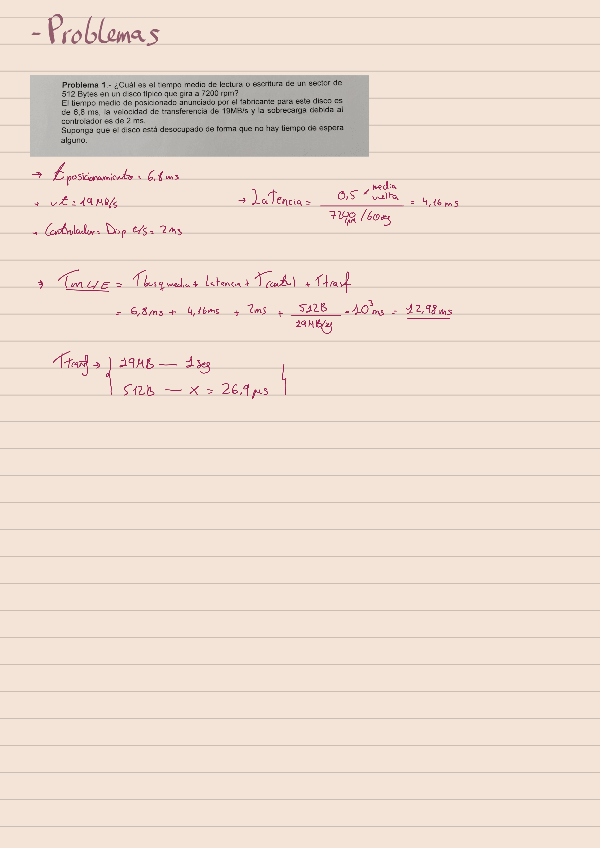 - Problemas
Problema 1.- ¿Cuál es el tiempo medio de lectura o escritura de un sector de
512 Bytes en un disco típico que gira a 7200 rpm?
El tiempo medio de posicionado anunciado por el fabricante para este disco es
de 6,8 ms, la velocidad de transferencia de 19MB/s y la sobrecarga debida al
controlador es de 2 ms.
Suponga que el disco está desocupado de forma que no hay tiempo de espera
alguno.
→ t posicionamiento = 6,8 ms
→ vt = 19 MB/s
→ Controlador = Disp e/s = 2ms
→ Latencia = 0,5 → media vuelta / 7200 rpm /60seg = 4,16 ms
→ Tm L/E = Tbusq media + latencia + Tcontrl + Ttrasf
= 6,8ms + 4,16ms + 2ms + 512B / 19MB/sg · 10³ ms = 12,98 ms
Ttransf → 19MB — 1 seg
512B — x = 26,9 µs